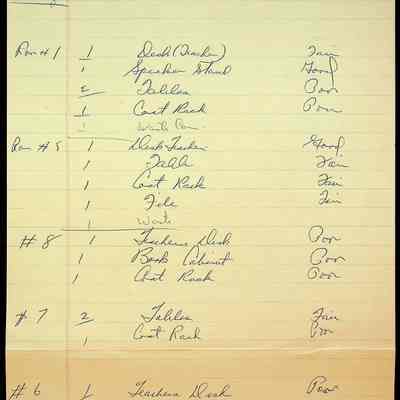 Rm # 1 1 Desk (Teacher) Fair
1 Speaker Stand Good
2 Tables Poor
1 Coat Rack Poor
1 Waste
Rm # 5 1 Desk Teacher Good
1 Table Fair
1 Coat Rack Fair
1 File Fair
1 Waste
# 8 1 Teachers Desk Poor
1 Book Cabinet Poor
1 Coat Rack Poor
# 7 2 Tables Fair
1 Coat Rack Poor
# 6 1 Teachers Desk Poor